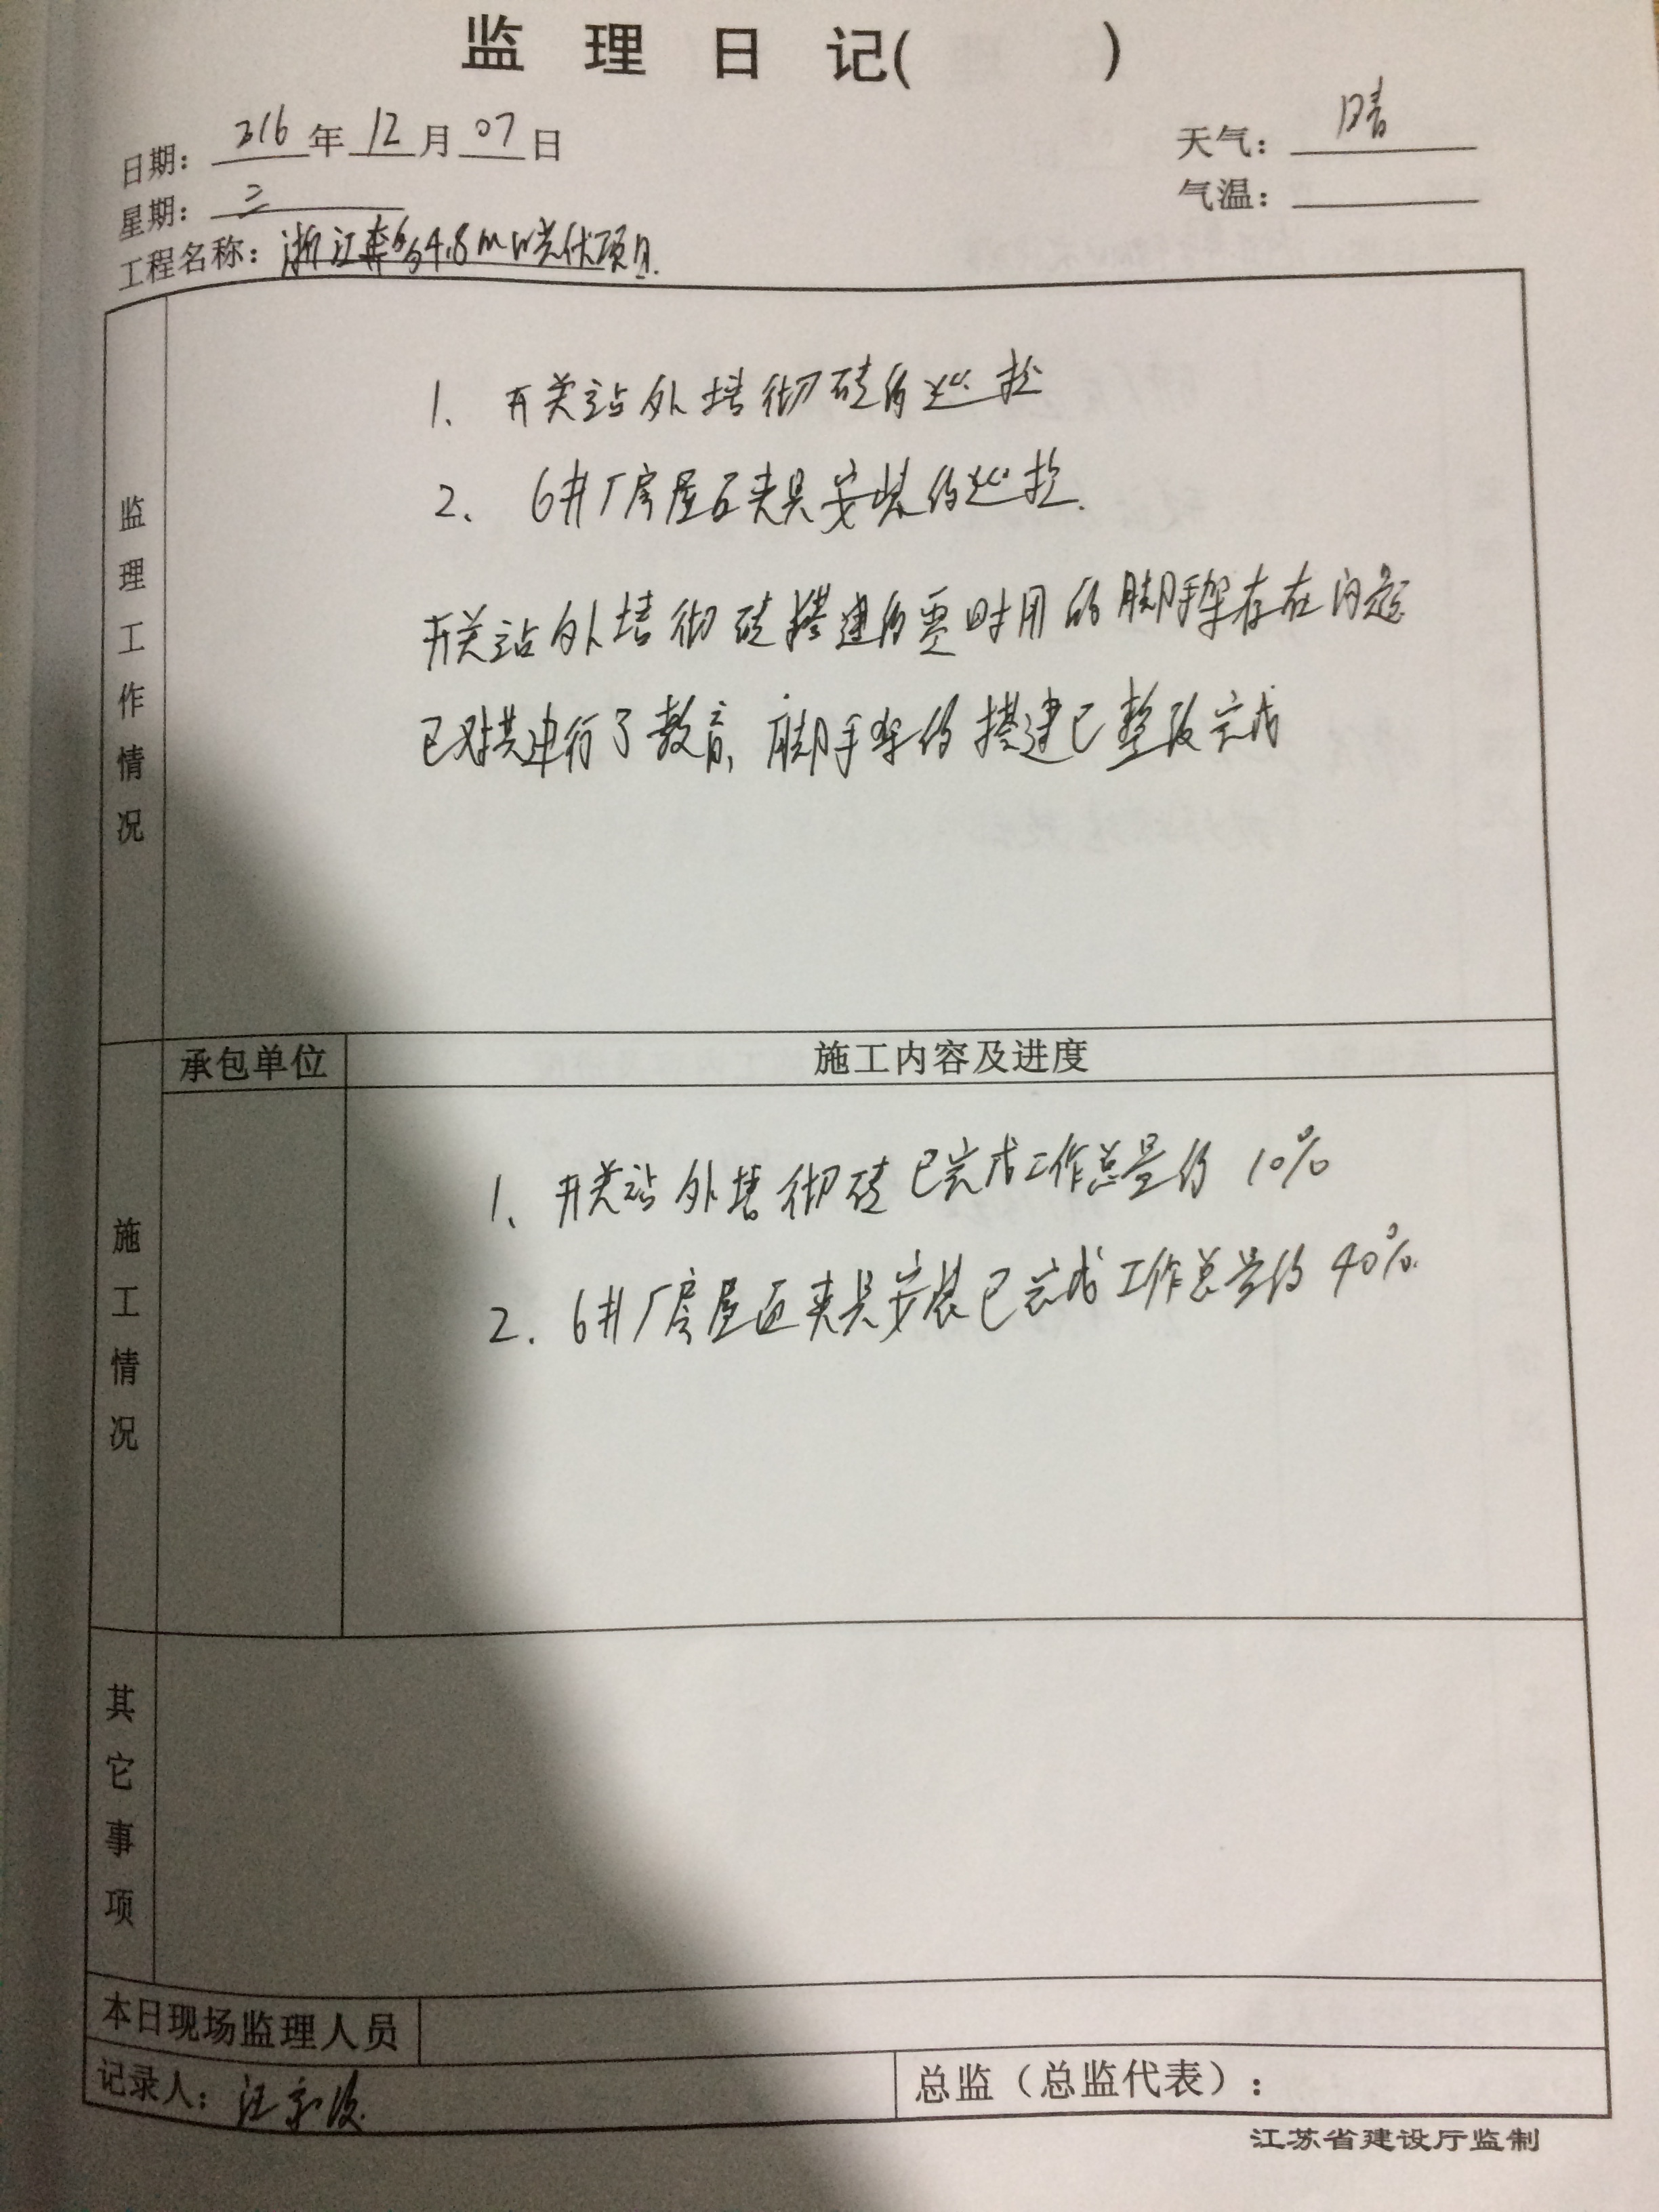 监理日记( )
日期: 2016年12月07日
天气: 晴
星期: 三
气温:
工程名称: 浙江奔多4.8MW光伏项目.
监理工作情况
1、开关站外墙彻砖的巡检
2、6井厂房屋面夹具安装的巡检.
开关站外墙彻砖搭建所需时用的脚手架存在问题
已对其进行了教育,脚手架的搭建已整改完成
承包单位
施工内容及进度
施工情况
1、开关站外墙彻砖已完成工作总量的10%
2. 6井厂房屋面夹具安装已完成工作总量的40%.
其它事项
本日现场监理人员
记录人: 汪
总监(总监代表):
江苏省建设厅监制